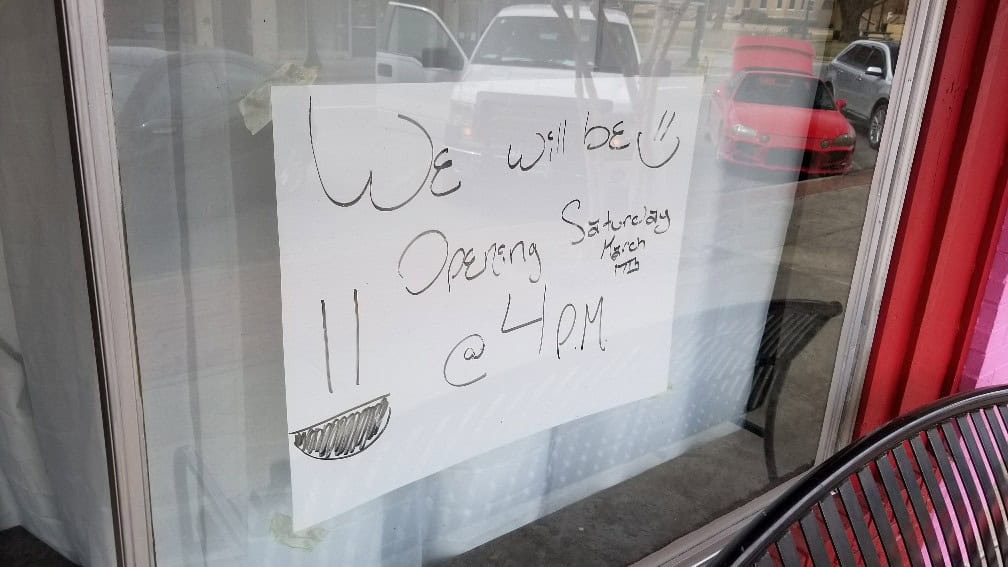 We will be
Opening Saturday
March
17th
@ 4 P.M.